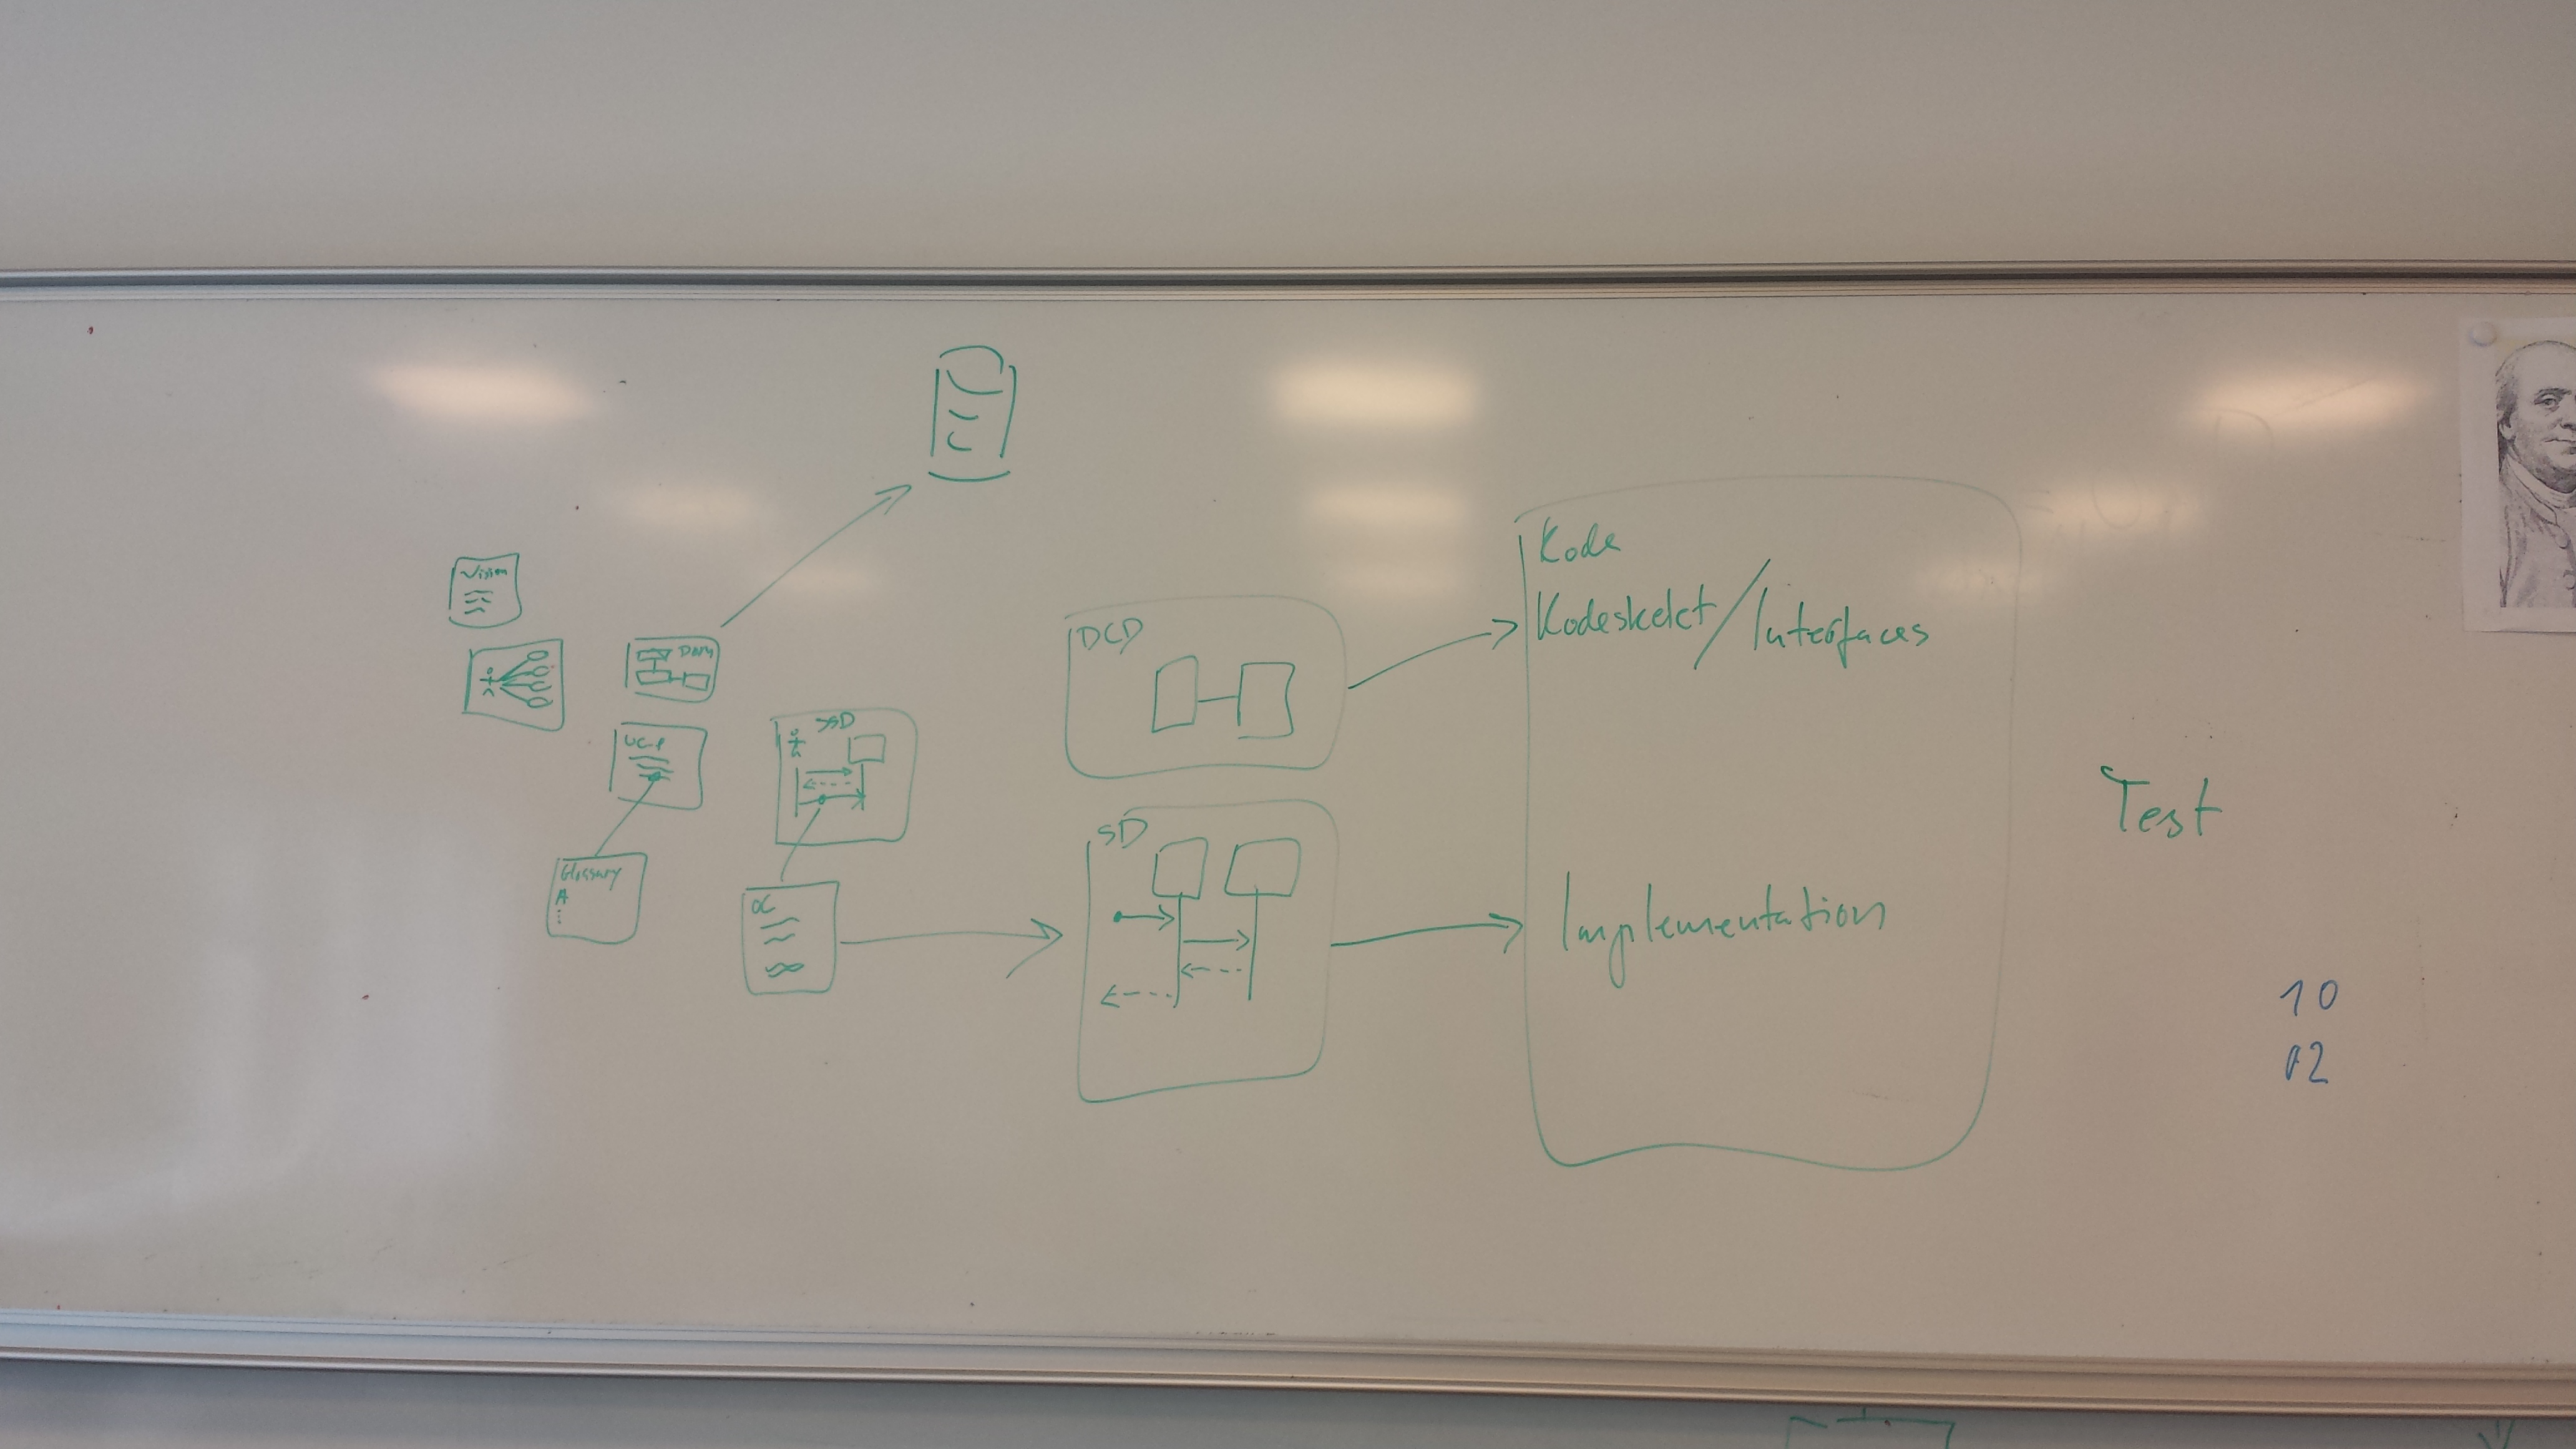 Vision
Dom
UC-1
SSD
Glossary
A
OC
DCD
SD
Kode
Kodeskelet / Interfaces
Implementation
Test
10
02